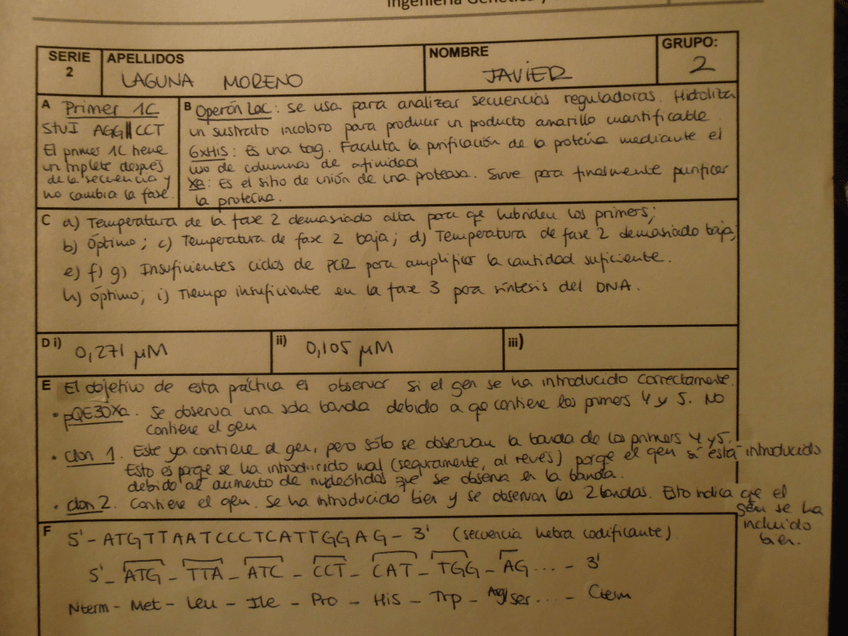 Ingeniería Genética y
SERIE 2 APELLIDOS NOMBRE GRUPO:
LAGUNA MORENO JAVIER 2
A Primer 1C
StuI AGG||CCT
El primer 1C tiene
un triplete después
de la secuencia y
no cambia la fase.
B Operón Lac: Se usa para analizar secuencias reguladoras. Hidroliza
un sustrato incoloro para producir un producto amarillo cuantificable.
6xHis: Es una tag. Facilita la purificación de la proteína mediante el
uso de columnas de afinidad
Xa: Es el sitio de unión de una proteasa. Sirve para finalmente purificar
la proteína.
C a) Temperatura de la fase 2 demasiado alta para qe hibriden los primers;
b) Óptimo; c) Temperatura de fase 2 baja; d) Temperatura de fase 2 demasiado baja;
e) f) g) Insuficientes ciclos de PCR para amplificar la cantidad suficiente.
h) óptimo; i) Tiempo insuficiente en la fase 3 para síntesis del DNA.
D i) 0,271 μM ii) 0,105 μM iii)
E El objetivo de esta práctica es observar si el gen se ha introducido correctamente.
• pQE30Xa. Se observa una sola banda debido a qe contiene los primers 4 y 5. No
contiene el gen
• clon 1. Este ya contiene el gen, pero sólo se observan la banda de los primers 4 y 5.
Esto es porqe se ha introducido mal (seguramente, al revés) porqe el gen sí está introducido
debido al aumento de nucleótidos que se observa en la banda.
• clon 2. Contiene el gen. Se ha introducido bien y se observan las 2 bandas. Esto indica que el
gen se ha
incluido
bien.
F 5'-ATGTTAATCCCTCATTGGAG-3' (secuencia hebra codificante)
5'-ATG-TTA-ATC-CCT-CAT-TGG-AG...-3'
Nterm-Met-Leu-Ile-Pro-His-Trp-Arg/Ser...-Cterm